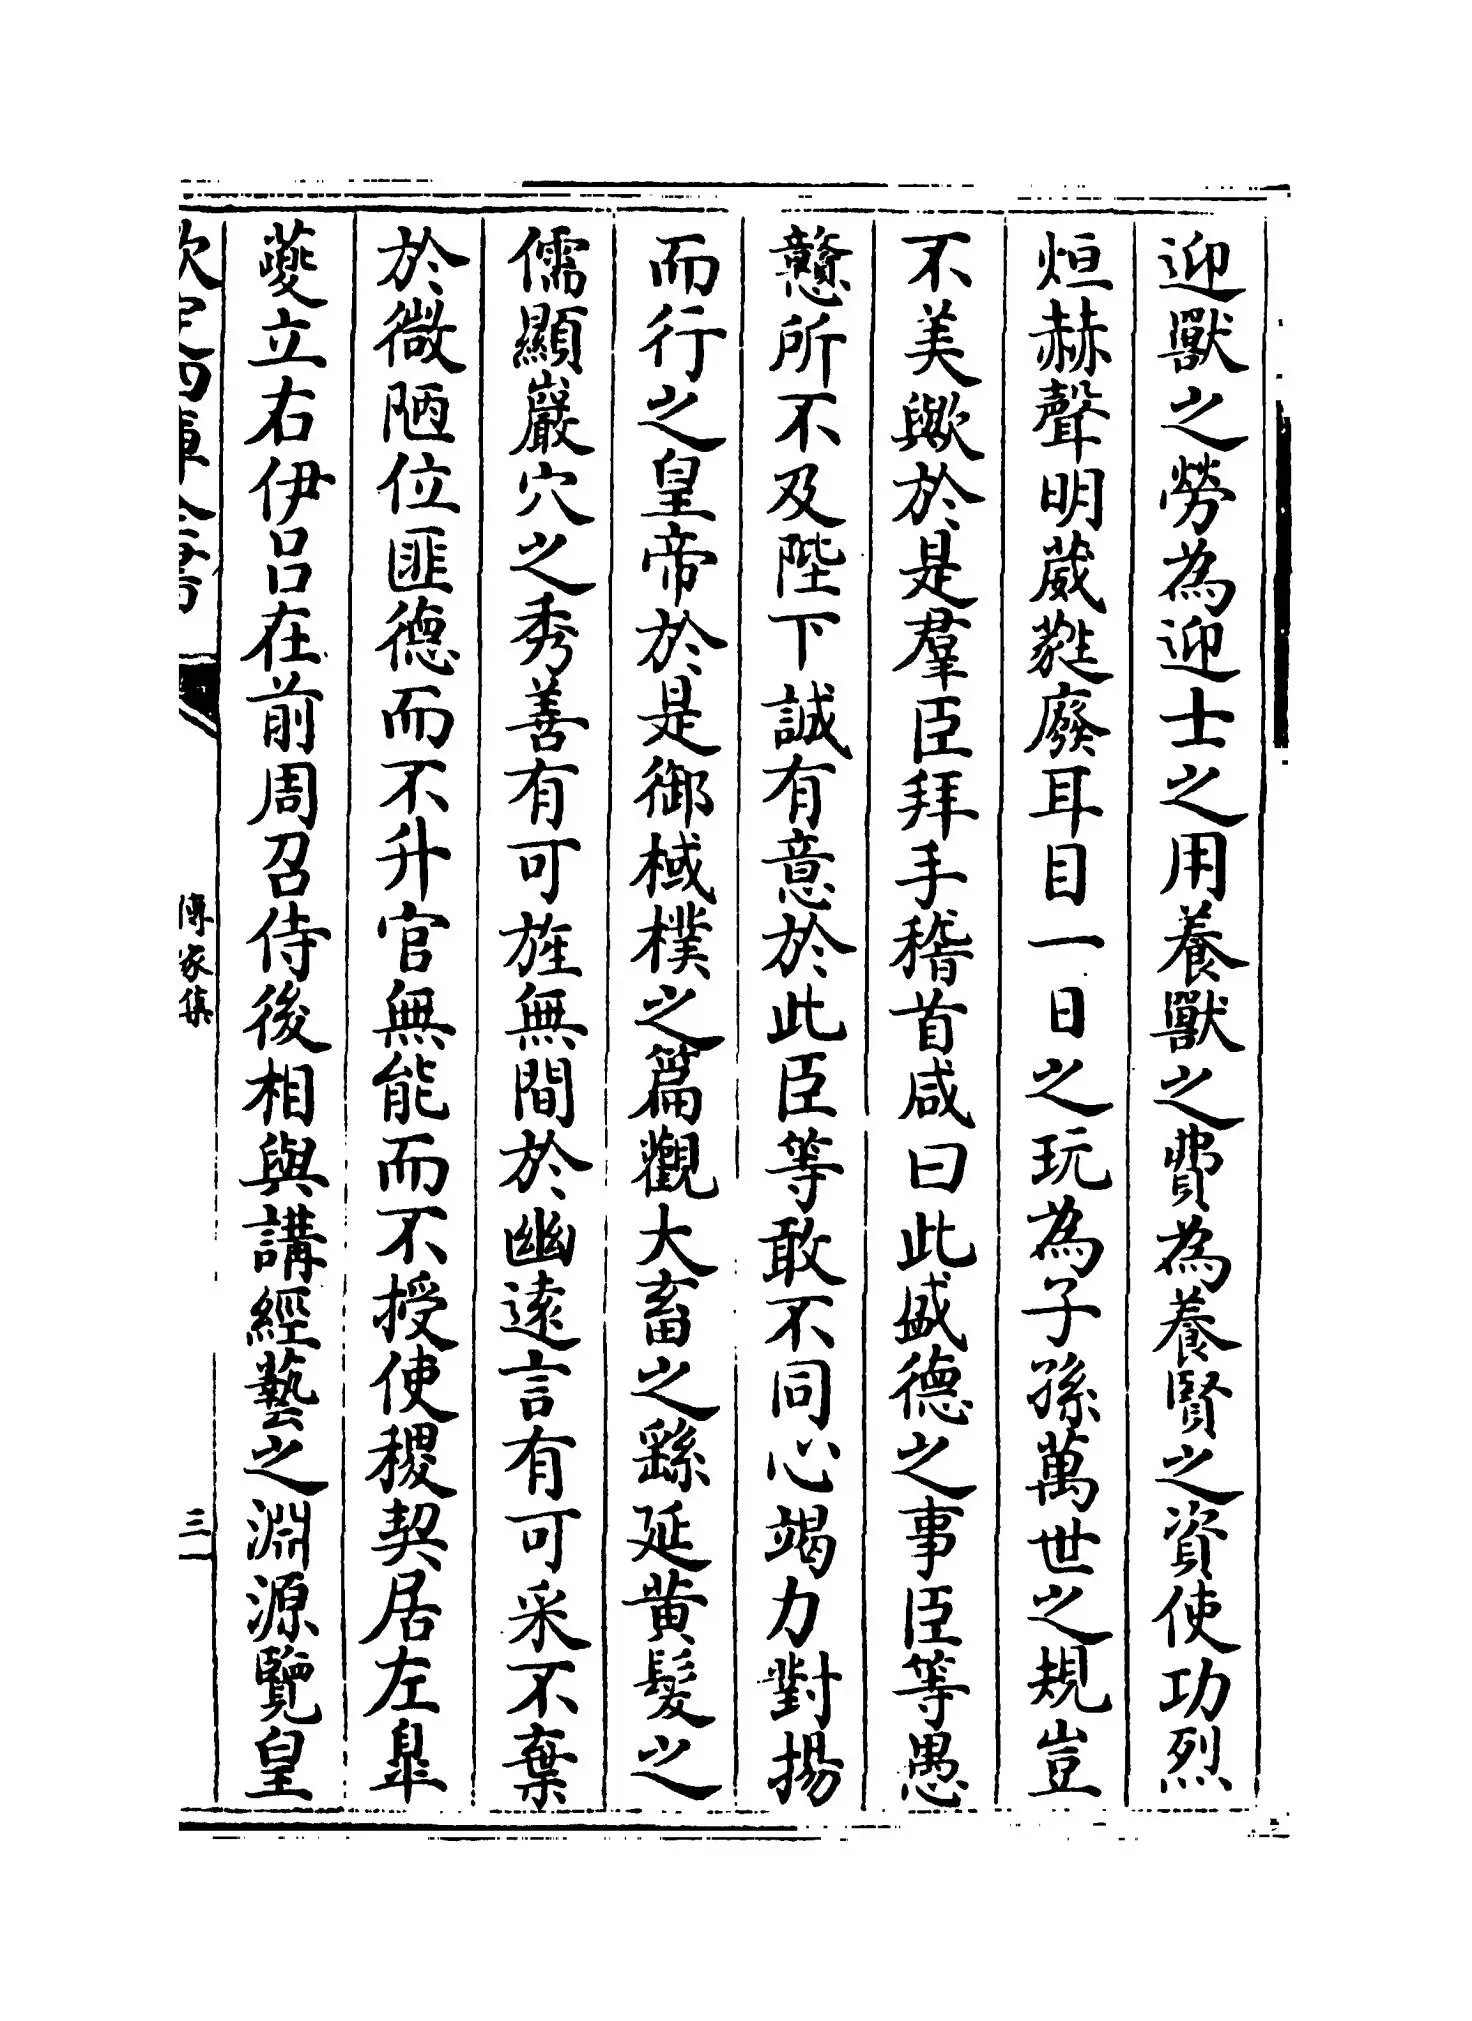 迎獸之勞為迎士之用養獸之費為養賢之資使功烈
烜赫聲明葳蕤廢耳目一日之玩為子孫萬世之規豈
不美歟於是羣臣拜手稽首咸曰此盛德之事臣等愚
戇所不及陛下誠有意於此臣等敢不同心竭力對揚
而行之皇帝於是御棫樸之篇觀大畜之繇延黄髮之
儒顯巖穴之秀善有可旌無間於幽遠言有可采不棄
於微陋位匪德而不升官無能而不授使稷契居左臯
夔立右伊吕在前周召侍後相與講經藝之淵源覽皇
欽定四庫全書
傳家集
三